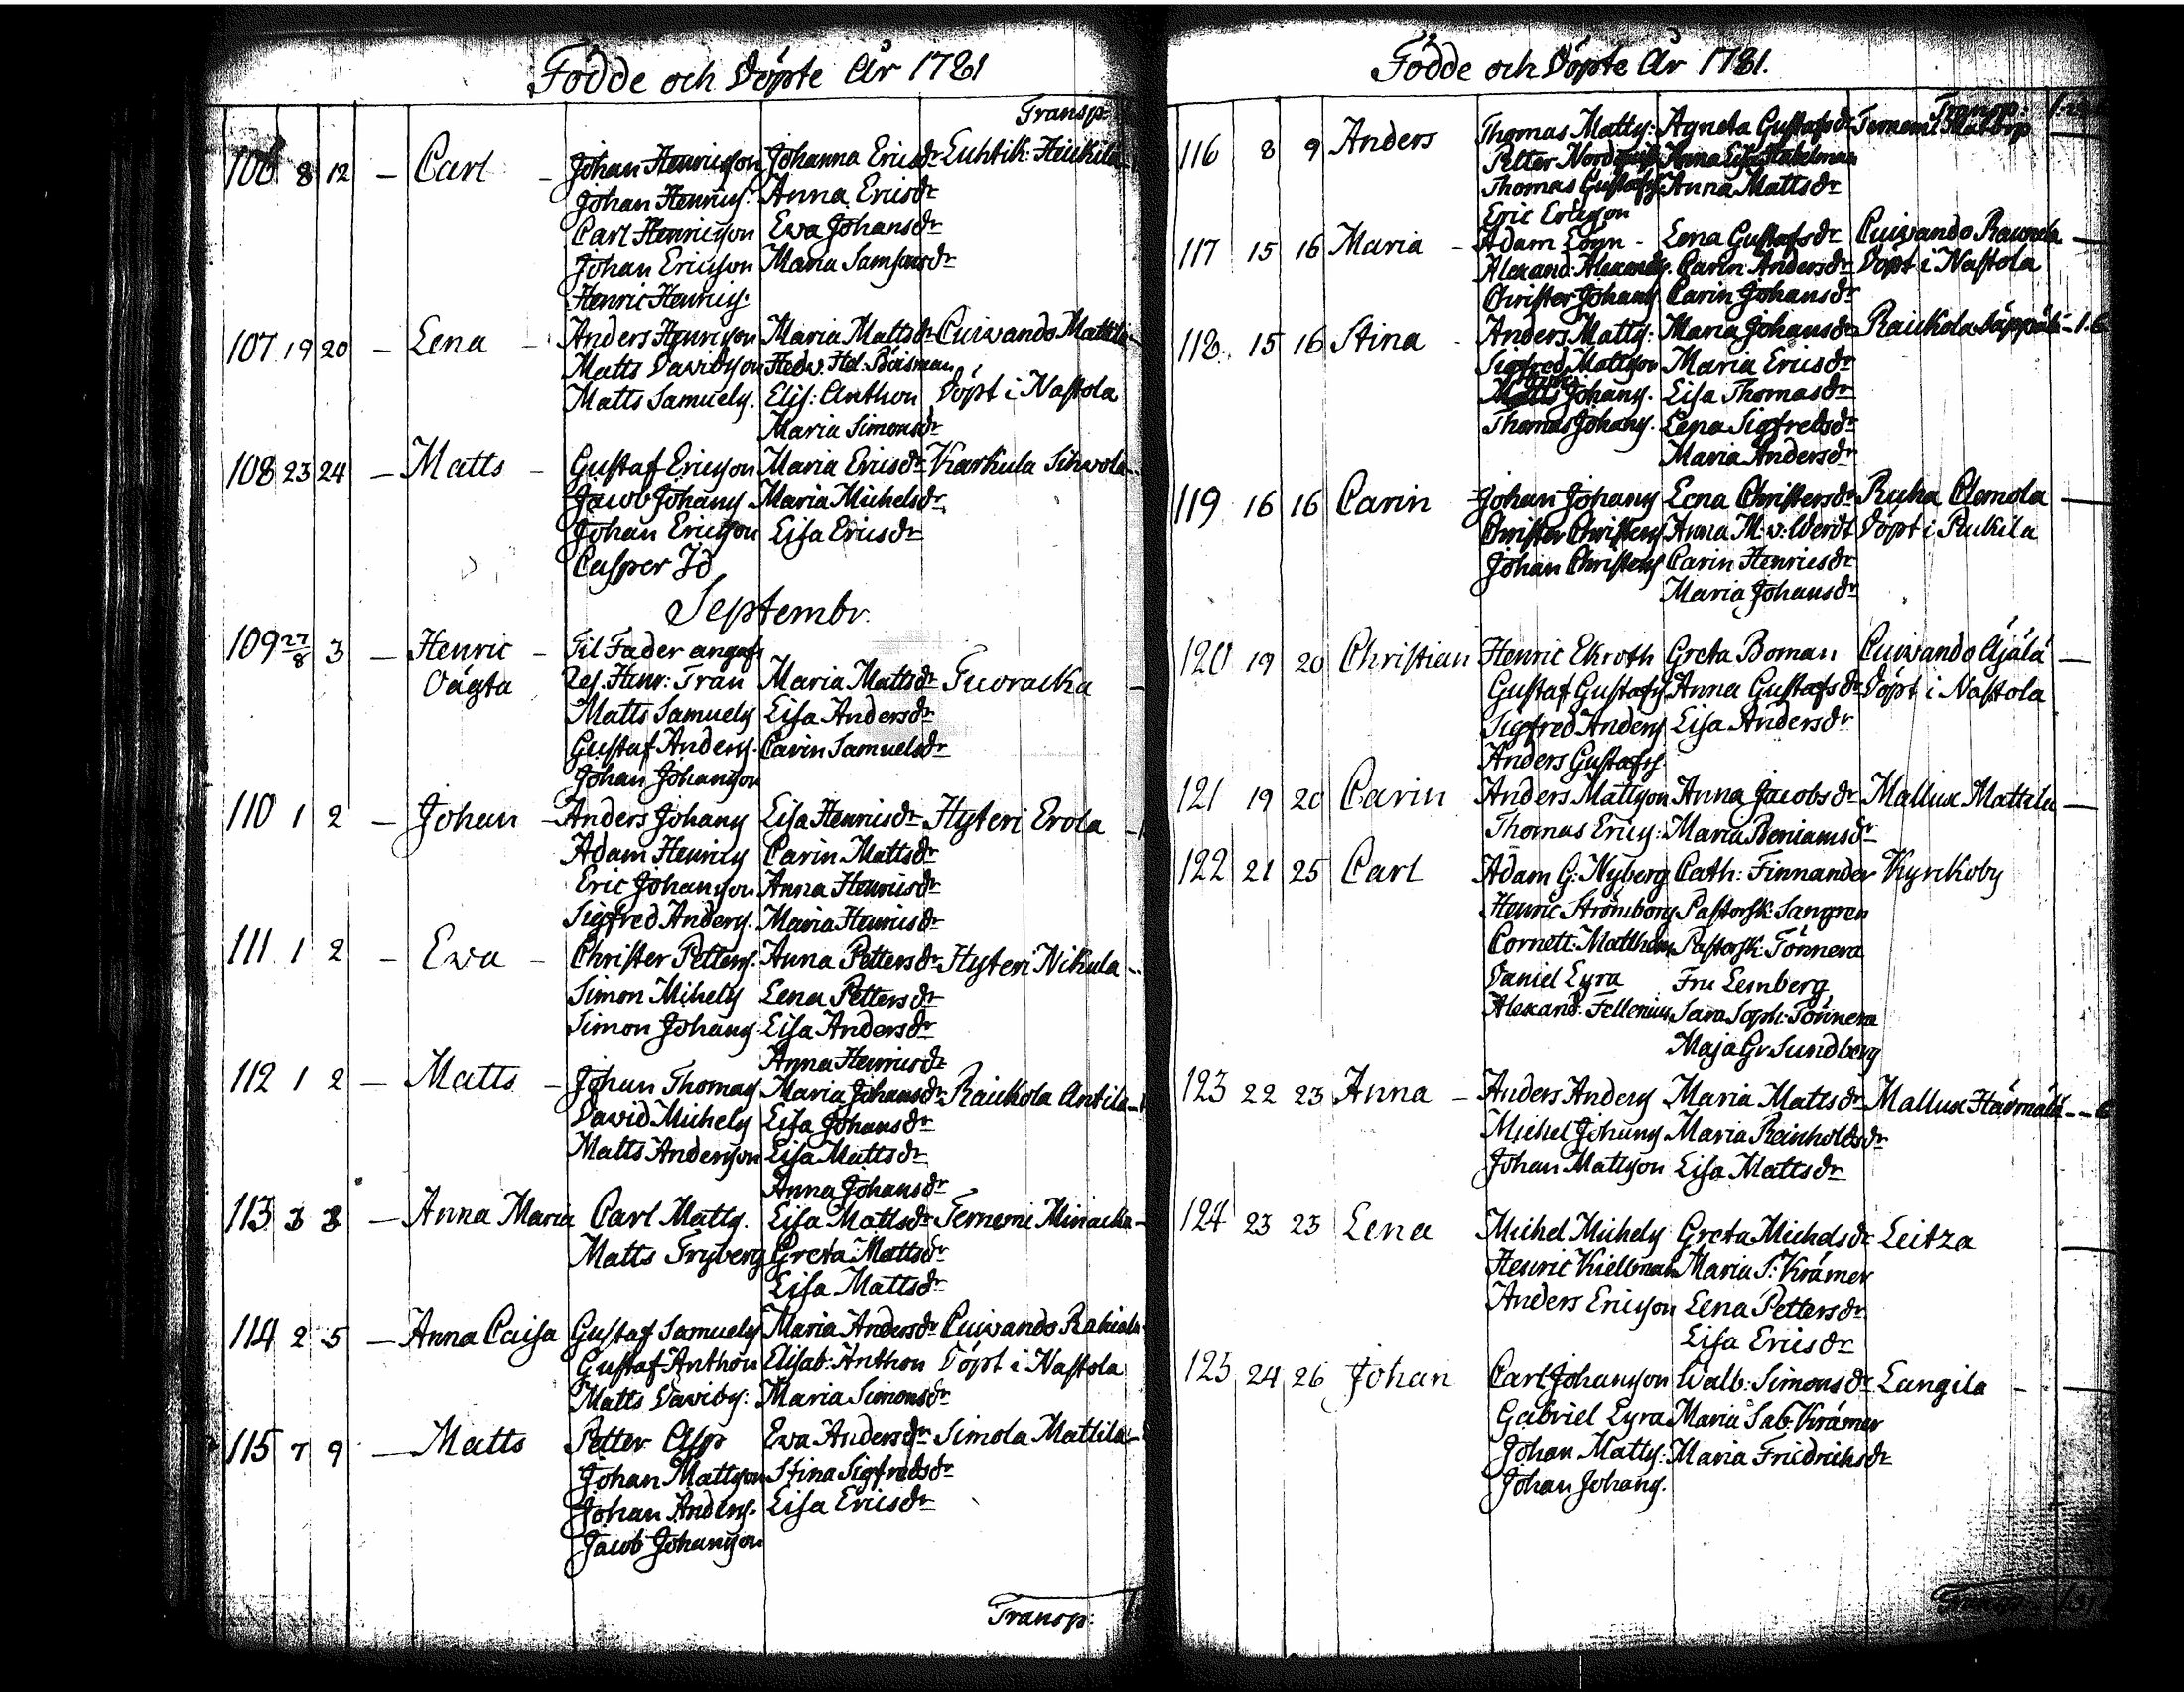 Födde och Döpte År 1781
Transp:
106 8 12 – Carl – Johan Henricsson Johanna Ericsdr Luhtik: Heikilä
Johan Henrics: Anna Ericsdr
Carl Henricsson Ewa Johansdr
Johan Ericsson Maria Samsonsdr
Henric Henrics.
107 19 20 – Lena – Anders Henricsson Maria Mattsdr Cuivando Mattila
Matts Davidsson Hedv. Hel. Boisman
Matts Samuels. Elis: Anthon Döpt i Nastola
Maria Simonsdr
108 23 24 – Matts – Gustaf Ericsson Maria Ericsdr Karkula Sihvola
Jacob Johans Maria Michelsdr
Johan Ericsson Lisa Ericsdr
Casper Id
Septembr.
109 27/8 3 – Henric – Til Fader angafs
Oägta Res. Henr: Tran Maria Mattsdr Tuoracka
Matts Samuels Lisa Andersdr
Gustaf Anders. Carin Samuelsdr
Johan Johansson
110 1 2 – Johan – Anders Johans Lisa Henricsdr Hysteri Erola
Adam Henrics Carin Mattsdr
Eric Johansson Anna Henricsdr
Sigfred Anders. Maria Henricsdr
111 1 2 – Ewa – Christer Petters. Anna Pettersdr Hysteri Nikula
Simon Mihels Lena Pettersdr
Simon Johans Lisa Andersdr
Anna Henricsdr
112 1 2 – Matts – Johan Thomas Maria Johansdr Raickola Antila
David Michels Lisa Johansdr
Matts Andersson Lisa Mattsdr
Anna Johansdr
113 3 3 – Anna Maria Carl Matts. Lisa Mattsdr Ternemi Minacka
Matts Fryberg Greta Mattsdr
Lisa Mattsdr
114 2 5 – Anna Caisa Gustaf Samuels Maria Andersdr Cuivando
Gustaf Anthon Elisab: Anthon Döpt i Nastola
Matts Davids: Maria Simonsdr
115 7 9 – Matts Petter Asp Ewa Andersdr Simola Mattila
Johan Mattsson Stina Sigfredsdr
Johan Anders. Lisa Ericsdr
Jacob Johansson
Transp:
Födde och Döpte År 1781.
Transp:
116 8 9 Anders Thomas Matts: Agneta Gustafsdr Ternemi
Petter Nordqvist Anna Lisa Stahelman
Thomas Gustafs Anna Mattsdr
Eric Ericsson
117 15 16 Maria – Adam Lögn – Lena Gustafsdr Cuivando
Alexand: Alexands. Carin Andersdr Döpt i Nastola
Christer Johans Carin Johansdr
118. 15 16 Stina – Anders Matts: Maria Johansdr Raickola Säppälä
Sigfred Mattsson Maria Ericsdr
Johans. Lisa Thomasdr
Thomas Johans. Lena Sigfredsdr
Maria Andersdr
119 16 16 Carin Johan Johans Lena Christersdr Ruha Clemola
Christer Christers Anna M: v: Werdt Döpt i Rukila
Johan Christers Carin Henricsdr
Maria Johansdr
120 19 20 Christian Henric Ekroth Greta Boman Cuivando Äjälä
Gustaf Gustafs Anna Gustafsdr Döpt i Nastola
Sigfred Anders Lisa Andersdr
Anders Gustafs
121 19 20 Carin Anders Mattsson Anna Jacobsdr Mallux Mattila
Thomas Erics: Maria Beniamsdr
122 21 25 Carl Adam G: Nyberg Cath: Finnander Kyrckoby
Henric Strömborg Pastorsk: Sangren
Cornett: Pastorsk: Tönnera
Daniel Lyra Fru Lemberg
Alexand: Fellenius Sara Soph: Tönnera
Maja Gr Sundberg
123 22 23 Anna – Anders Anders Maria Mattsdr Mallux Härmälä
Michel Johans Maria Reinholdsdr
Johan Mattsson Lisa Mattsdr
124 23 23 Lena Michel Michels Greta Michelsdr Leitza
Henric Kiellman Maria S: Krämer
Anders Ericsson Lena Pettersdr
Lisa Ericsdr
125 24 26 Johan Carl Johansson Walb: Simonsdr Langila –
Gabriel Lyra Maria Sab: Krämer
Johan Matts: Maria Friedrichsdr
Johan Johans.
Transp: